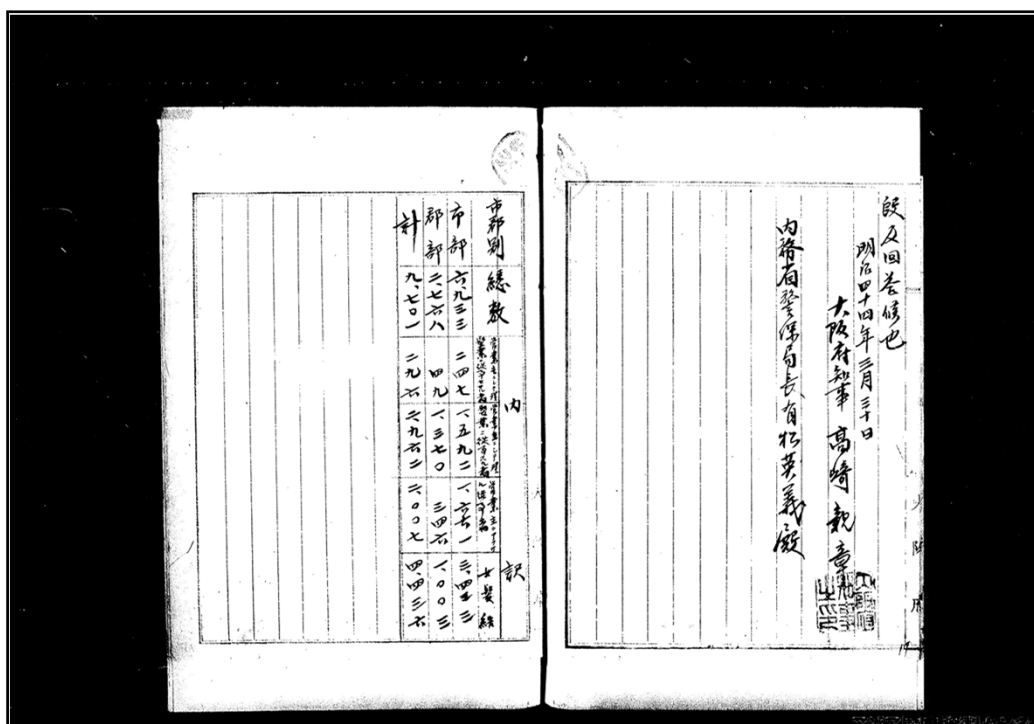 段及回答候也
明治四十四年三月三十日
大阪府知事 高崎親章
内務省警保局長有松英義殿
大阪府
市郡別 總数 内訳 女髪結
市部 六、九三三 二四七 一、五九二 一、六六一 三、四三三
郡部 二、七六八 四九 一、三七〇 三四六 一、〇〇三
計 九、七〇一 二九六 二、九六二 二、〇〇七 四、四三六